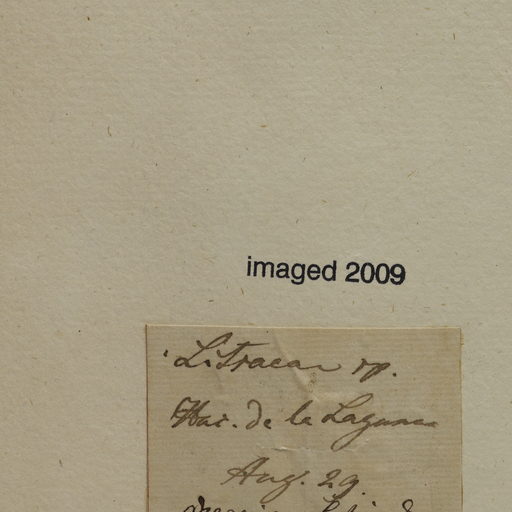 imaged 2009
Litsaea sp.
Hac. de la Laguna
Aug. 29.